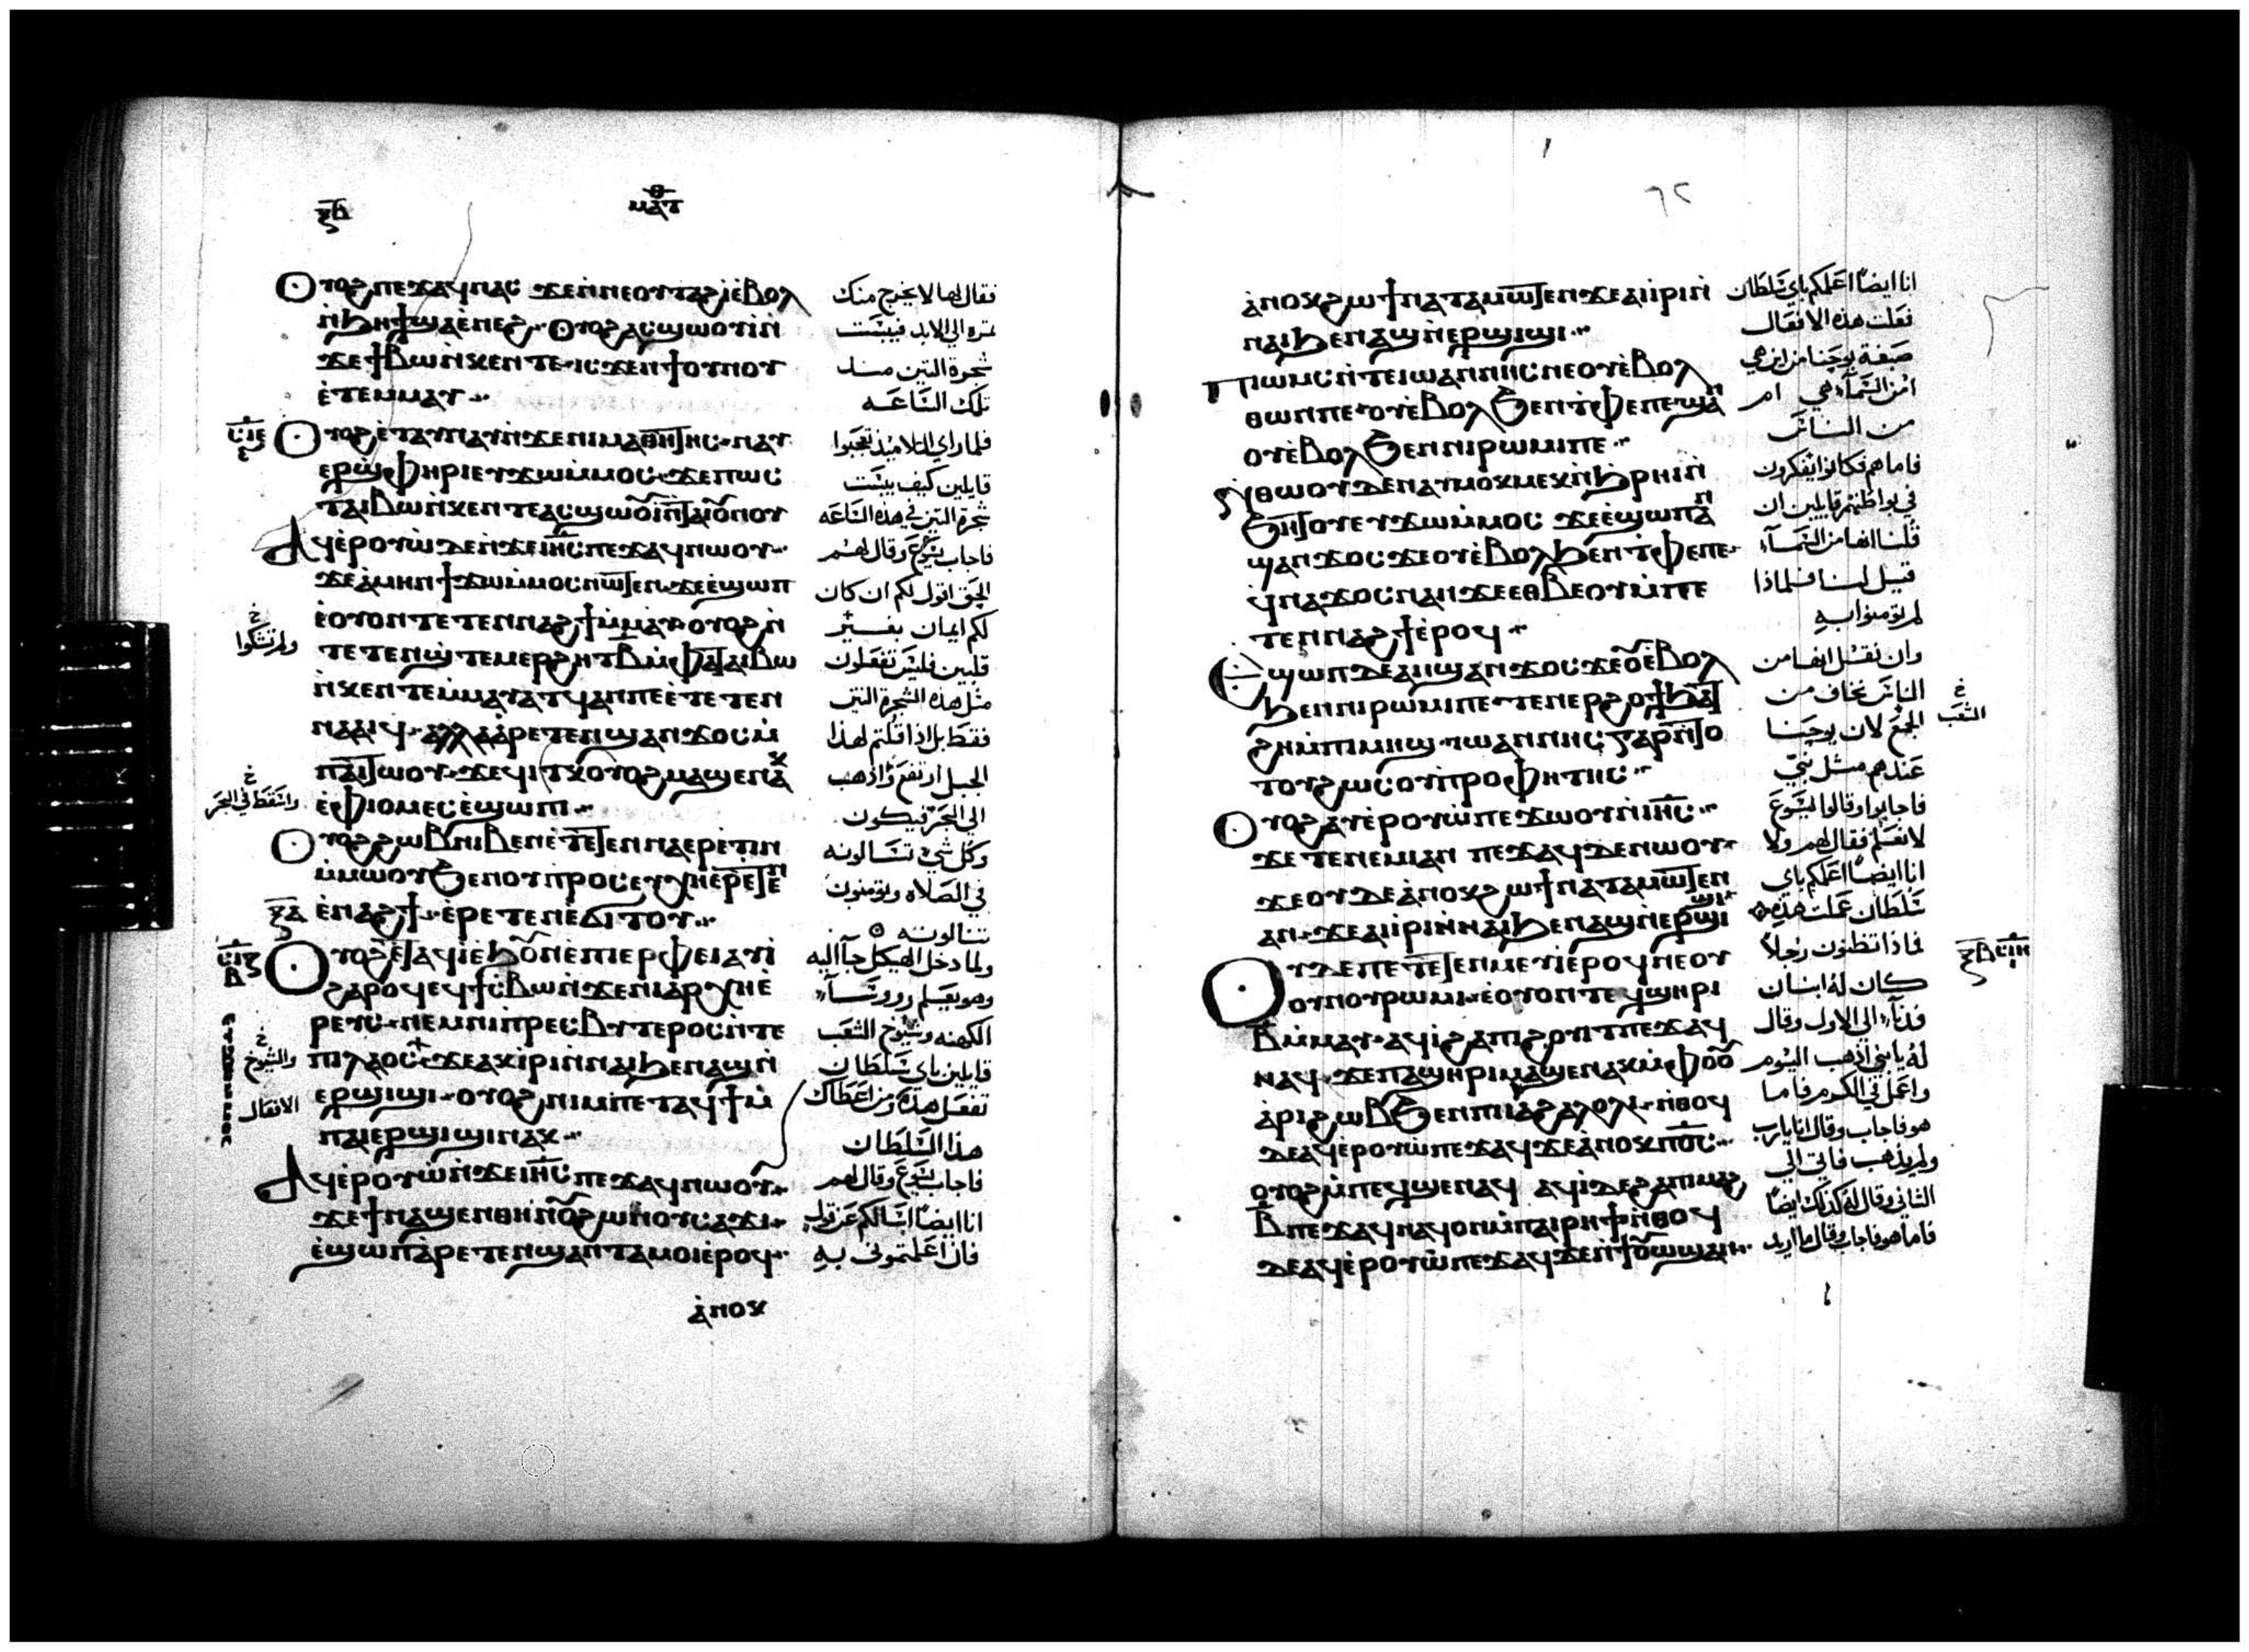 ⲝⲃ
ⲙⲁⲧ
ⲟⲩⲟϩ ⲡⲉϫⲁϥ ⲛⲁⲥ ϫⲉ ⲛ̀ⲛⲉ ⲟⲩⲧⲁϩ ⲓ̀ ⲉ̀ⲃⲟⲗ
ⲛ̀ϧⲏϯ ϣⲁ ⲉ̀ⲛⲉϩ ⲟⲩⲟϩ ⲁⲥϣⲱⲟⲩⲓ̀ ⲛ̀
ϫⲉ ϯⲃⲱ ⲛ̀ⲕⲉⲛⲧⲉ ⲓⲥϫⲉⲛ ϯⲟⲩⲛⲟⲩ
ⲉ̀ⲧⲉⲙⲙⲁⲩ
ⲟⲩⲟϩ ⲉ̀ⲧⲁⲩⲛⲁⲩ ⲛ̀ϫⲉ ⲛⲓⲙⲁⲑⲏⲧⲏⲥ ⲛⲁⲩ
ⲉⲣϣ̀ⲫⲏⲣⲓ ⲉⲩϫⲱ ⲙ̀ⲙⲟⲥ ϫⲉ ⲡⲱⲥ
ⲁϥⲉ̀ⲣⲟⲩⲱ̀ ⲇⲉ ⲛ̀ϫⲉ ⲓⲏⲥ ⲡⲉϫⲁϥ ⲛⲱⲟⲩ
ϫⲉ ⲁ̀ⲙⲏⲛ ϯϫⲱ ⲙ̀ⲙⲟⲥ ⲛⲱⲧⲉⲛ ϫⲉ ⲉ̀ϣⲱⲡ
ⲉ̀ⲟⲩⲟⲛⲧⲉⲧⲉⲛ ⲛⲁϩϯ ⲙ̀ⲙⲁⲩ ⲟⲩⲟϩ ⲛ̀
ⲛ̀ⲕⲉⲛⲧⲉ ⲙ̀ⲙⲁⲩⲁⲧϥ ⲁⲛ ⲡⲉ ⲉ̀ⲧⲉⲧⲉⲛ
ⲛⲁⲁⲓϥ ⲁⲗⲗⲁ ⲁ̀ⲣⲉⲧⲉⲛϣⲁⲛϫⲟⲥ ⲙ̀
ⲉ̀ⲫⲓⲟⲙ ⲉⲥⲉ̀ϣⲱⲡⲓ
ⲉ̀ⲛⲁϩϯ ⲉ̀ⲣⲉⲧⲉⲛⲉ̀ϭⲓⲧⲟⲩ
ⲣⲉⲩⲥ ⲛⲉⲙ ⲛⲓⲡ̀ⲣⲉⲥⲃⲩⲧⲉⲣⲟⲥ ⲛ̀ⲧⲉ
ⲡⲓⲗⲁⲟⲥ ϫⲉ ⲁⲕⲓ̀ⲣⲓ ⲛ̀ⲛⲁⲓ ϧⲉⲛ ⲁϣ ⲛ̀
ⲉⲣϣⲓϣⲓ ⲟⲩⲟϩ ⲛⲓⲙ ⲡⲉⲧⲁϥϯ ⲙ̀
ⲡⲁⲓⲉⲣϣⲓϣⲓ ⲛⲁⲕ
ⲁϥⲉ̀ⲣⲟⲩⲱ̀ ⲛ̀ϫⲉ ⲓⲏⲥ ⲡⲉϫⲁϥ ⲛⲱⲟⲩ
ⲉ̀ϣⲱⲡ ⲁ̀ⲣⲉⲧⲉⲛϣⲁⲛⲧⲁⲙⲟⲓ ⲉ̀ⲣⲟϥ
ⲁ̀ⲛⲟⲕ
فقال لها لا يخرج منك
ثمره الي الابد فيبست
شجرة التين منذ
تلك الساعه
فلما راي التلاميذ تعجبوا
قايلين كيف يبست
شجرة التين في هذه الساعه
فاجاب يسوع وقال لهم
الحق اقول لكم ان كان
لكم ايمان بغير
قلبين فليس تفعلون
مثل هذه الشجرة التين
فقط بل اذا قلتم لهذا
الجبل ارتفع واذهب
الي البحر فيكون
وكل شي تسالونه
في الصلاه وتومنون
تنالونه
ولما دخل الهيكل جآ اليه
وهو يعلم روسآء
الكهنه وشيوخ الشعب
قايلين باي سلطان
تفعل هذه ومن اعطاك
هذا السلطان
فاجاب يسوع وقال لهم
انا ايضا اسالكم عن قول
فان اعلمتموني به
ولم تشكوا
واسقط في البحر
والشيوخ
الافعال
٦٢
ⲁ̀ⲛⲟⲕ ϩⲱ ϯⲛⲁⲧⲁⲙⲱⲧⲉⲛ ϫⲉ ⲁⲓⲓ̀ⲣⲓ ⲛ̀
ⲛⲁⲓ ϧⲉⲛ ⲁϣ ⲛ̀ⲉⲣϣⲓϣⲓ
ⲡⲓⲱⲙⲥ ⲛ̀ⲧⲉ ⲓⲱⲁⲛⲛⲏⲥ ⲛⲉ ⲟⲩⲉ̀ⲃⲟⲗ
ⲑⲱⲛ ⲡⲉ ⲟⲩⲉ̀ⲃⲟⲗ ϧⲉⲛ ⲧ̀ⲫⲉ ⲡⲉ ϣⲁⲛ
ⲟⲩⲉ̀ⲃⲟⲗ ϧⲉⲛ ⲛⲓⲣⲱⲙⲓ ⲡⲉ
ⲛ̀ⲑⲱⲟⲩ ⲇⲉ ⲛⲁⲩⲙⲟⲕⲙⲉⲕ ⲛ̀ϧⲣⲏⲓ ⲛ̀
ϣⲁⲛϫⲟⲥ ϫⲉ ⲟⲩⲉ̀ⲃⲟⲗ ϧⲉⲛ ⲧ̀ⲫⲉ ⲡⲉ
ϥⲛⲁϫⲟⲥ ⲛⲁⲛ ϫⲉ ⲉⲑⲃⲉⲟⲩ ⲙ̀ⲡⲉ
ⲧⲉⲛⲛⲁϩϯ ⲉ̀ⲣⲟϥ
ⲧⲟⲩ ϩⲱⲥ ⲟⲩⲡ̀ⲣⲟⲫⲏⲧⲏⲥ
ⲟⲩⲟϩ ⲁⲩⲉ̀ⲣⲟⲩⲱ̀ ⲡⲉϫⲱⲟⲩ ⲛ̀ⲓⲏⲥ
ϫⲉ ⲧⲉⲛⲉⲙⲓ ⲁⲛ ⲡⲉϫⲁϥ ⲇⲉ ⲛⲱⲟⲩ
ϫⲉ ⲟⲩⲇⲉ ⲁ̀ⲛⲟⲕ ϩⲱ ϯⲛⲁⲧⲁⲙⲱⲧⲉⲛ
ⲁⲛ ϫⲉ ⲁⲓⲓ̀ⲣⲓ ⲛ̀ⲛⲁⲓ ϧⲉⲛ ⲁϣ ⲛ̀ⲉⲣϣⲓϣⲓ
ⲟⲩⲛⲟⲩⲣⲱⲙⲓ ⲉ̀ⲟⲩⲟⲛⲧⲉϥ ϣⲏⲣⲓ
ⲃ ⲙ̀ⲙⲁⲩ ⲁϥⲓ̀ ϩⲁ ⲡⲓϩⲟⲩⲓⲧ ⲡⲉϫⲁϥ
ⲁ̀ⲣⲓϩⲱⲃ ϧⲉⲛ ⲡⲓⲓⲁϩⲁⲗⲟⲗⲓ ⲛ̀ⲑⲟϥ
ⲇⲉ ⲁϥⲉ̀ⲣⲟⲩⲱ̀ ⲡⲉϫⲁϥ ϫⲉ ⲁ̀ⲛⲟⲕ ⲡ̀ⲟ̅ⲥ̅
ⲟⲩⲟϩ ⲙ̀ⲡⲉϥϣⲉⲛⲁϥ ⲁϥⲓ̀ ⲇⲉ ϩⲁ ⲡⲓⲙⲁϩ
ⲃ ⲡⲉϫⲁϥ ⲛⲁϥ ⲟⲛ ⲙ̀ⲡⲁⲓⲣⲏϯ ⲛ̀ⲑⲟϥ
انا ايضا اعلمكم باي سلطان
فعلت هذه الافعال
صبغة يوحنا من اين هي
امن السمآء هي ام
من الناس
فاما هم فكانوا يفكرون
في بواطنهم قايلين ان
قلنا انها من السمآء
قيل لنا فلماذا
لم تومنوا به
وان نقل انها من
الناس نخاف من
الجمع لان يوحنا
عندهم مثل نبي
فاجابوا وقالوا ليسوع
لا نعلم فقال لهم ولا
انا ايضا اعلمكم باي
سلطان عملت هذه
فماذا تظنون رجلا
كان له ابنان
فدنا الي الاول وقال
له يا بني اذهب اليوم
واعمل في الكرم فاما
هو فاجاب وقال انا يا رب
ولم يذهب فاتي الي
الثاني وقال له كذلك ايضا
فاما هو فاجاب وقال ما اريد
الشعب